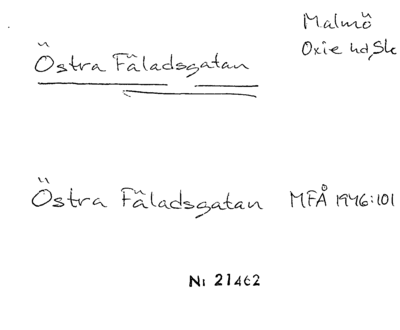 Malmö
Oxie hd, Sk
Östra Fäladsgatan
Östra Fäladsgatan MFÅ 1946:101
Nı 21462